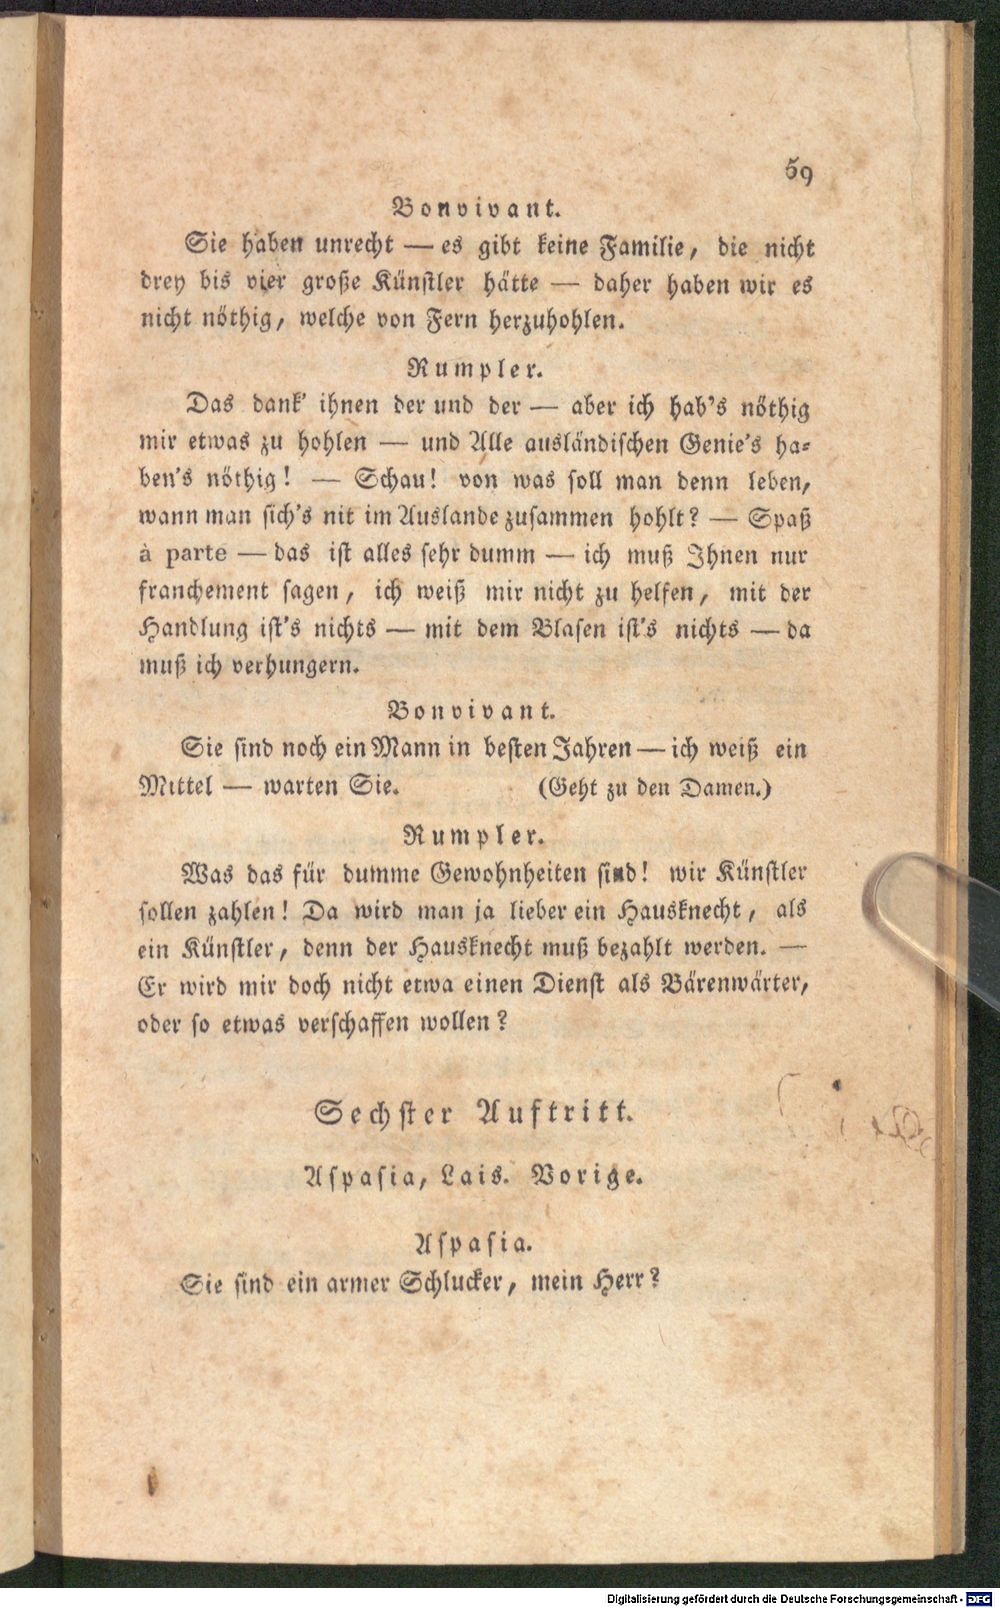 59
Bonvivant.
Sie haben unrecht — es gibt keine Familie, die nicht
drey bis vier große Künstler hätte — daher haben wir es
nicht nöthig, welche von Fern herzuhohlen.
Rumpler.
Das dank' ihnen der und der — aber ich hab's nöthig
mir etwas zu hohlen — und Alle ausländischen Genie's ha-
ben's nöthig! — Schau! von was soll man denn leben,
wann man sich's nit im Auslande zusammen hohlt? — Spaß
à parte — das ist alles sehr dumm — ich muß Ihnen nur
franchement sagen, ich weiß mir nicht zu helfen, mit der
Handlung ist's nichts — mit dem Blasen ist's nichts — da
muß ich verhungern.
Bonvivant.
Sie sind noch ein Mann in besten Jahren — ich weiß ein
Mittel — warten Sie. (Geht zu den Damen.)
Rumpler.
Was das für dumme Gewohnheiten sind! wir Künstler
sollen zahlen! Da wird man ja lieber ein Hausknecht, als
ein Künstler, denn der Hausknecht muß bezahlt werden. —
Er wird mir doch nicht etwa einen Dienst als Bärenwärter,
oder so etwas verschaffen wollen?
Sechster Auftritt.
Aspasia, Lais. Vorige.
Aspasia.
Sie sind ein armer Schlucker, mein Herr?
Digitalisierung gefördert durch die Deutsche Forschungsgemeinschaft - DFG